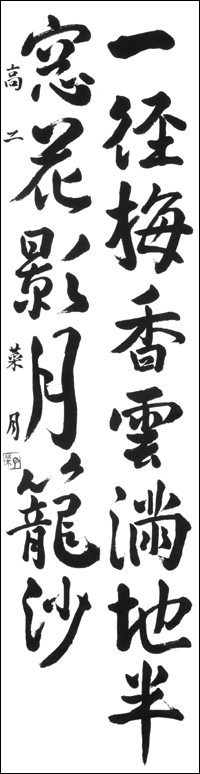 一径梅香雲満地半
窓花影月籠沙
高二 菜月